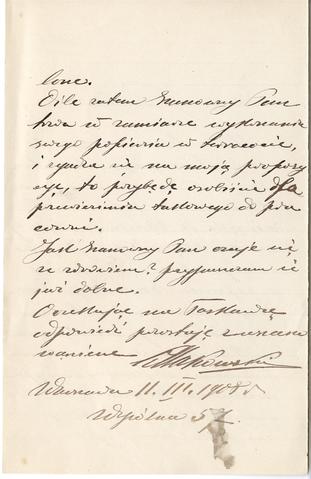 lone.
O ile zatem Szanowny Pan
trwa w zamiarze wykonania
swego popiersia w terracocie,
i zgadza się na moją propozy
cyę, to przybędę osobiście dla
przewiezienia takowego do pra
cowni.
Jak Szanowny Pan czuje się
ze zdrowiem? przypuszczam iż
już dobrze.
Oczekując na Łaskawą
odpowiedź pozostaję z uszano
waniem
Warszawa 11. III. 1908 r
Wspólna